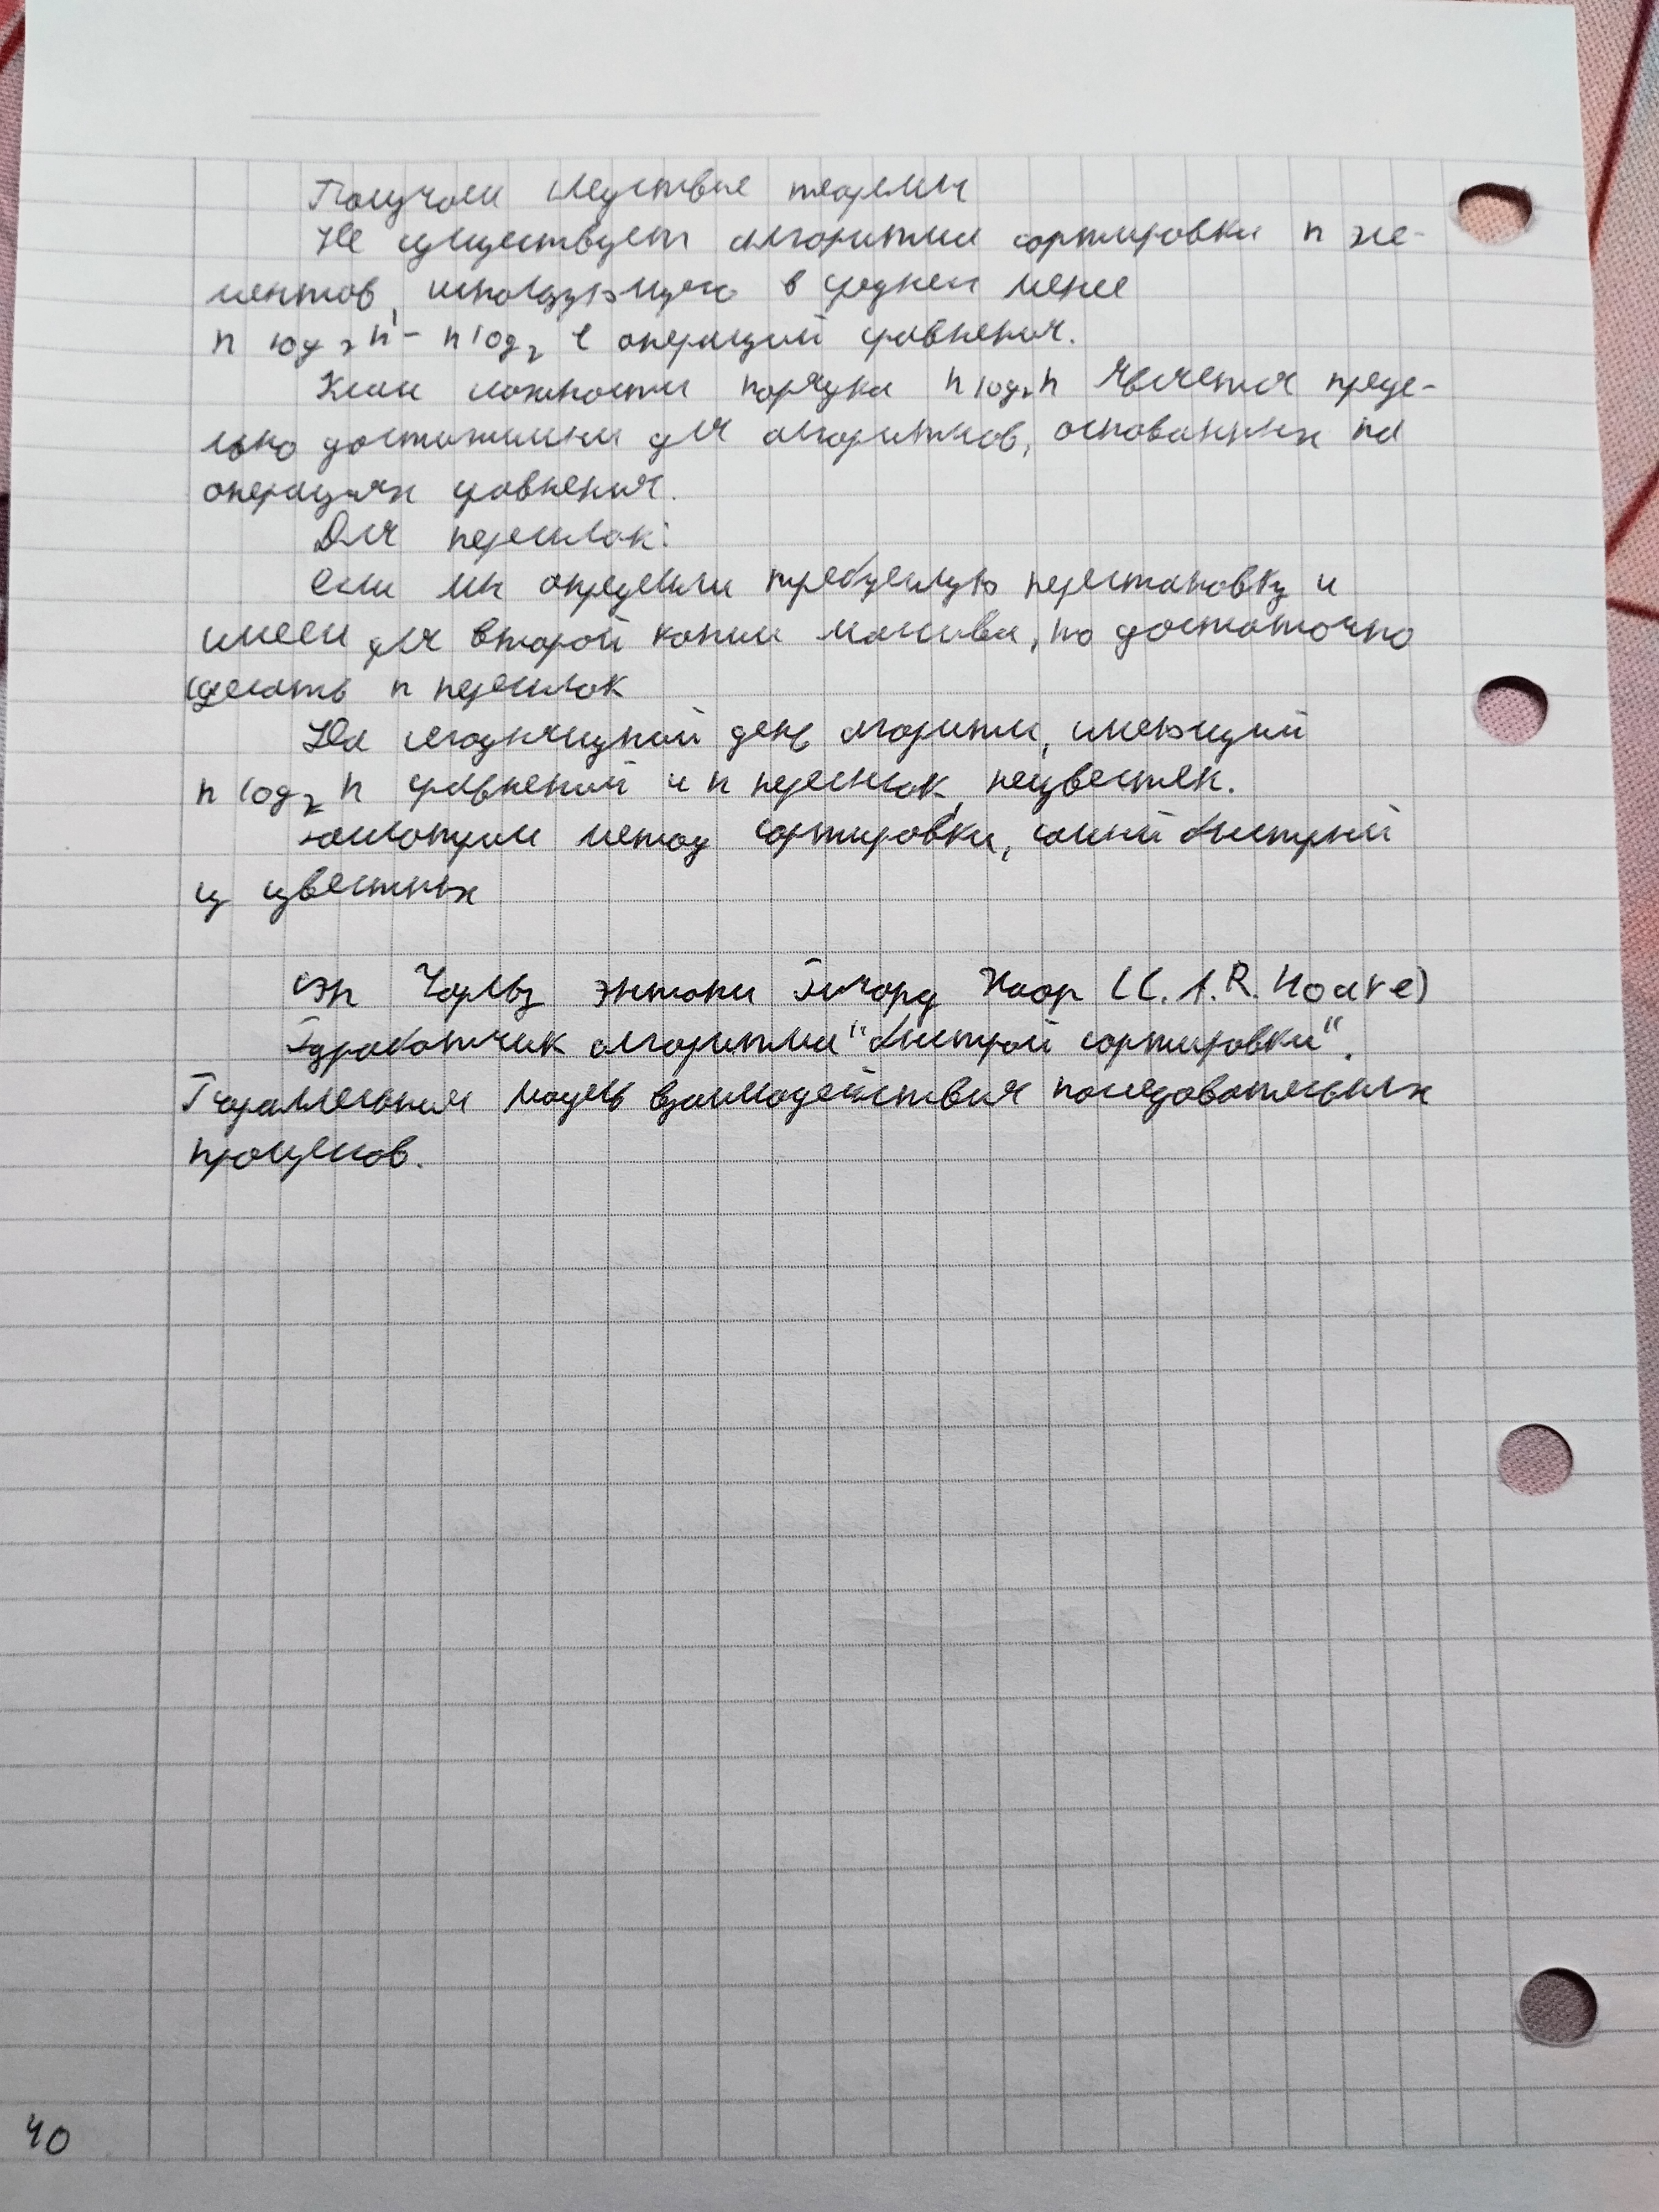 Получаем следствие теоремы
Не существует алгоритма сортировки n эле-
ментов, использующего в среднем менее
n log₂ n - n log₂ e операций сравнения.
Класс сложности порядка n log₂ n является преде-
льно достижимым для алгоритмов, основанных на
операциях сравнения.
Для пересылок:
если мы определили требуемую перестановку и
имеем для второй копии массива, то достаточно
сделать n пересылок
На сегодняшний день алгоритм, имеющий
n log₂ n сравнений и n пересылок, неизвестен.
Рассмотрим метод сортировки, самый быстрый
из известных
Сэр Чарльз Энтони Ричард Хоар (C. A. R. Hoare)
Разработчик алгоритма "быстрой сортировки".
Параллельная модель взаимодействия последовательных
процессов.
40